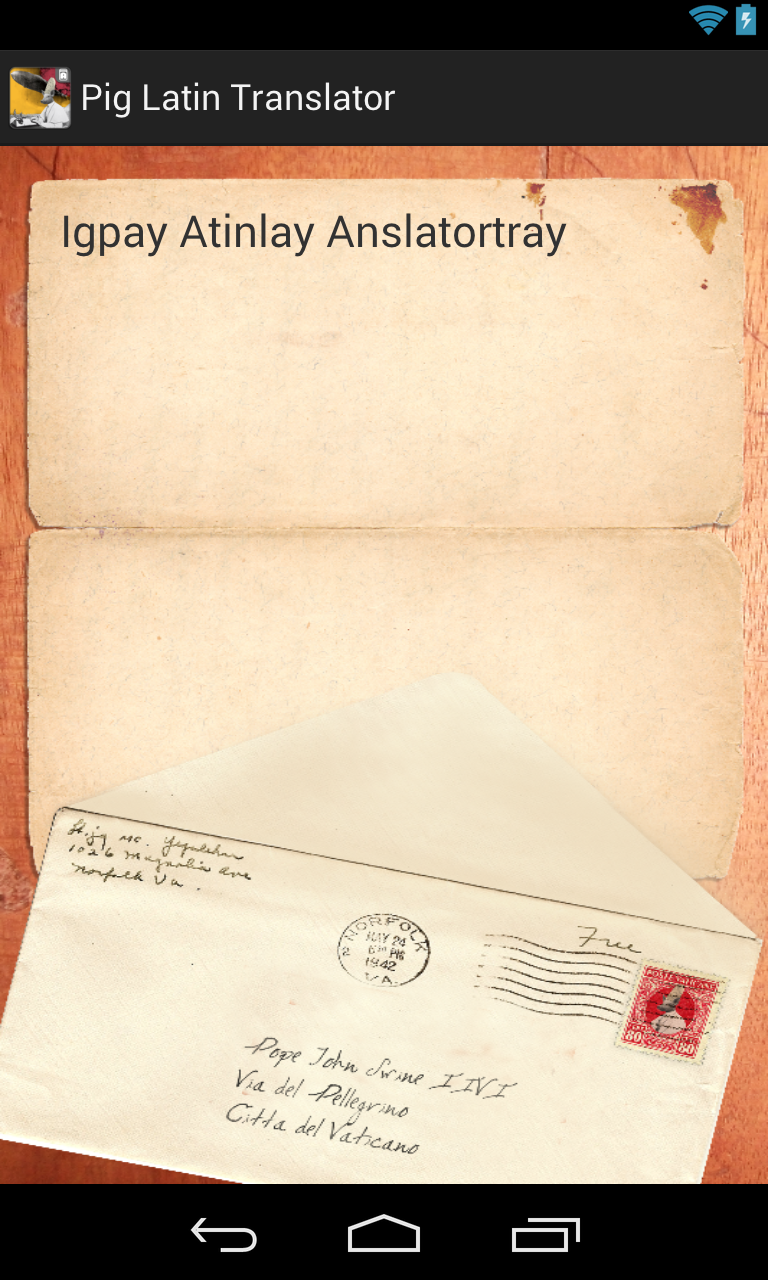 Pig Latin Translator
Igpay Atinlay Anslatortray
1026 Magnolia Ave
Norfolk Va.
NORFOLK
2
1942
VA.
Free
80 80
Pope John Swine IIVI
Via del Pellegrino
Citta del Vaticano